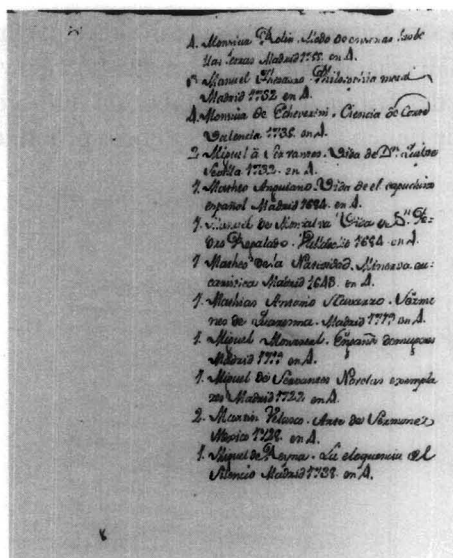 4. Monsieur Rolin. Modo de enseñar las be
llas letras Madrid 1755. en 4.
Manuel Thesauro. Philosophia moral
Madrid 1752 en 4.
4. Monsieur de Echeverini. Ciencia de Corte
Valencia 1736. en 4.
2. Miguel Servantes. Vida de Dn. Quixote
Sevilla 1732. en 4.
1. Matheo Anguiano. Vida de el capuchino
español Madrid 1684. en 4.
1. Manuel de Monialva Vida de Sn. Pe-
dro Regalado. 1684. en 4.
1. Matheo de la Natividad. Minerva eu-
caristica Madrid 1645. en 4.
1. Mathias Antonio Navarro. Sermo
nes de Quaresma. Madrid 1717 en 4.
1. Miguel Monsreal. Engaños de mugeres
Madrid 1719 en 4.
1. Miguel de Servantes Novelas exempla
res Madrid 1722. en 4.
2. Martin Velasco. Arte de Sermones
Mexico 1728. en 4.
1. Miguel de Reyna. La eloquencia del
silencio Madrid 1738. en 4.